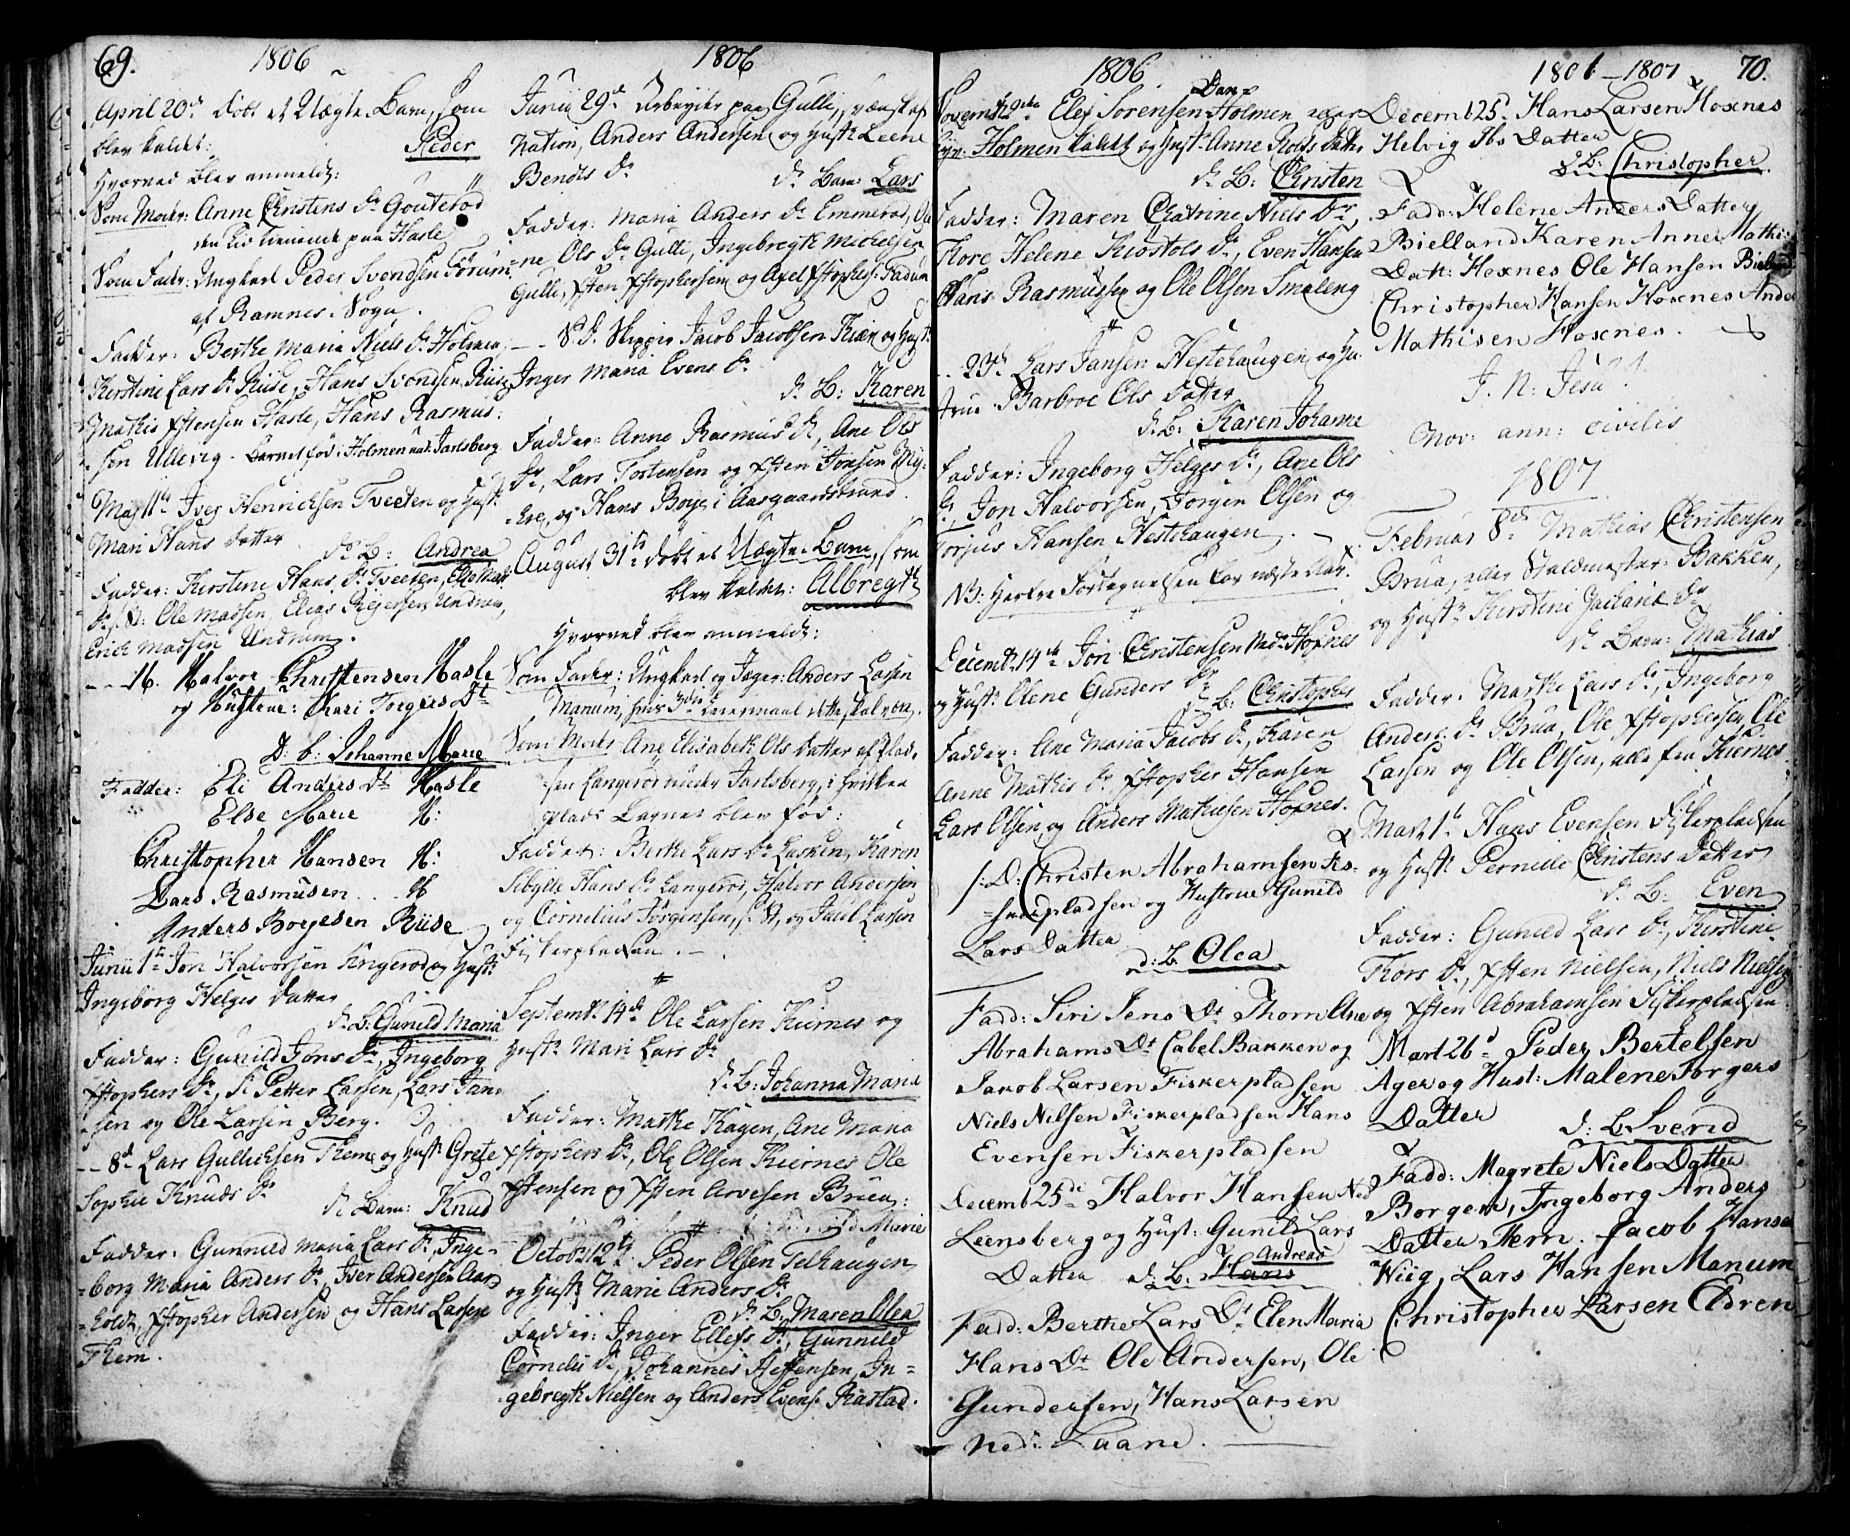 69.
1806
April 20de døbt et Uægte Barn, som
blev kaldet: Peder
Hvorved blev anmeldt:
Som Moder: Anne Christens Dr Gouterod
den Tid tienende paa Hasle
Som Fader: Ungkarl Peder Svendsen Førum,
af Ramnes Sogn.
Fadder: Berthe Maria Niels Dr Holmen,
Kirstine Lars Dr Riise, Hans Svendsen Riise,
Mathis Xstensen Hasle, Hans Rasmus-
sen Ullevig. Barnet fød i Holmen und: Jarlsberg
Maj 11te Iver Henrichsen Tveeten og Hust:
Mari Hans Datter
Dr B: Andrea
Fadder: Kirstine Hans Dr Tveeten, Else Mads
Dr S: St: Ole Madsen, Elias Reyersen Undrum,
Erich Madsen Undrum.
- - 16. Halvor Christensen Hasle
og Hustrue: Kari Torgers Dt
D: b: Johanne Marie
Fadder: Eli Anders Dt Hasle
Else Marie H:
Christopher Hansen H:
Lars Rasmusen .. H
Anders Borjesen Riise
Junii 1te Jon Halvorsen Ringerod og Hust:
Ingeborg Helges Datter
Dr B: Gunild Maria
Fadder: Gunild Jons Dr, Ingeborg
Xstophers Dr, S. Petter Larsen, Lars Jan-
sen og Ole Larsen Berg.
- - 8de Lars Gullichsen Them og Hust: Grete
Sophie Knuds Dr
Dr Barn: Knud
Fadder: Gunnild Maria Lars Dr, Inge-
borg Maria Anders Dr, Iver Andersen Aas
holdt, Xstopher Andersen og Hans Larsen
Them.
1806
Junii 29de Arbeyder paa Gulli, svensk af
Nation, Anders Andersen og Hustr Leene
Bendts Dr
Dr Barn: Lars
Fadder: Maria Anders Dr Emmerod, Gu
ne Ols Dr Gulli, Ingebregth Michelsen
Gulli, Xsten Xstophersen og Axel Xstophers: Radum
- - S. D. Skipper Jacob Jacobsen Kiær og Hust:
Inger Maria Evens Dr
Dr B: Karen
Fadder: Anne Rasmus Dr, Ane Ols
Dr, Lars Tortensen og Xsten Jonsen My-
hre, og Hans Boye i Aasgaardstrand.
August 31te døbt et Uægte Barn, som
blev kaldet: Albregth
Hvorved blev anmeldt:
Som Fader: Ungkarl og Jæger: Anders Larsen
Manum, hvis 3die Leiermaal dette skal være.
Som Moder Ane Elisabeth Ols Datter af Plad-
sen Langerod under Jarlsberg, i hvilken
plads Barnet blev fød:
Fadder: Berthe Lars Dr Lasken, Karen
Sibylle Hans Dr Langerod, Halvor Andersen
og Cornelius Jørgensen, S: St, og Paul Larsen
Fiskerpladsen . -
Septemb: 14de Ole Larsen Kiernes og
Hustr Mari Lars Dr
Dr B: Johanna Maria
Fadder: Marthe Kagen, Ane Maria
Xstophers Dr, Ole Olsen Kiernes Ole
Xstensen og Xsten Arvesen Bruen:
Octob: 12te Peder Olsen Telhaugen
og Hustr Marie Anders Dr
Dr B: Maren Olea
Fadder: Inger Ellefs Dr, Gunnild
Cornelii Dr, Johannes Steffensen, In-
gebregth Nielsen og Anders Evens: Rastad.
1806
Novemb: 2den Elef Sorensen Holmen
Holmen kaldet og Hust: Anne Rolds Dattr
Dr B: Christen
Fadder: Maren Chatrine Niels Dr
Flore Helene Kiøstols Dr, Even Hansen
Hans Rasmussen og Ole Olsen Smaleng
- 23de Lars Jansen Hestehaugen og Hu
strue Barbroe Ols Datter
Dr B: Karen Johanne
Fadder: Ingeborg Helges Dr, Ane Ols
Dr, Jon Halvorsen, Jorgen Olsen og
Torjus Hansen Hestehaugen.
NB: Herfra Fortegnelsen for næste Aar.
Decemb: 14de Jon Christensen Ned: Hoxnes
og Hust: Olene Gunders Dr
Dr B: Christopher
Fadder: Ane Maria Jacobs Dr, Karen
Anne Mathis Dr Xstopher Hansen
Lars Olsen, og Anders Mathiesen Hoxnes.
S: D: Christen Abrahamsen Fis-
kerpladsen og Hustrue Gunild
Lars Datter
d: B. Olea
Fadd: Siri Jens Dt Thorn Ane
Abrahams Dt Cabel Bakken og
Jakob Larsen Fiskerpladsen
Niels Nilsen Fiskerpladsen Hans
Evensen Fiskerpladsen
Decemb 25de Halvor Hansen Ned
Leensberg og Hust: Gunild Lars
Andreas
Datter d: B. Hans
Fadd: Berthe Lars Dt Elen Maria
Hans Dt Ole Andersen, Ole
Gundersen, Hans Larsen
Ned: Laane.
1806 - 1807
70.
Decemb 25de Hans Larsen Hoxnes
Helvig Ibs Datter
d: B: Christopher
Fadd: Helene Anders Datter
Bielland Karen Anne Mathi:
Datt: Hoxnes Ole Hansen Bielland
Christopher Hansen Hoxnes Anders
Mathisen Hoxnes.
J. N: Jesu!
Nov: ann: civilis
1807
Februar 8de Mathias Christensen
Brua, eller Staldmester: Bakken,
og Hustr Kirstine Zacharie Dr
Dr Barn: Mathias
Fadder: Marthe Lars Dr, Ingeborg
Anders Dr Brua, Ole Xstophersen, Ole
Larsen og Ole Olsen, alle fra Kiernes
Mart 1te Hans Evensen Fiskerpladsen
og Hustr Pernille Christens Datter
Dr B: Even
Fadder: Gunild Lars Dr, Kirstine
Thors Dr, Xsten Nielsen, Niels Nielsen
og Xsten Abrahamsen Fiskerpladsen.
Mart 26d Peder Bertelsen
Ager og Hust: Malene Torgers
Datter d: B. Sverid
Fadd: Magrete Niels Datter
Borgen, Ingeborg Anders
Datter Hem. Jacob Hansen
Wiig, Lars Hansen Manum
Christopher Larsen Eldren